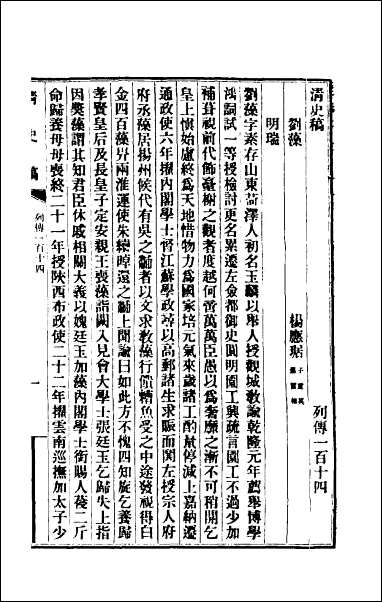 清史稿
列傳一百十四
劉藻
楊應琚 子重英 蘇爾相
明瑞
劉藻字素存山東菏澤人初名玉麟以舉人授觀城教諭乾隆元年薦舉博學
鴻詞試一等授檢討更名累遷左僉都御史圓明園工興疏言園工不過少加
補葺視前代飾臺榭之觀者度越何啻萬萬臣愚以爲奢靡之漸不可稍開乞
皇上懷始慮終爲天地惜物力爲國家培元氣來歲諸工酌量停減上嘉納遷
通政使六年擢內閣學士督江蘇學政尋以高郵諸生求賑而鬧左授宗人府
府丞藻居揚州候代有吳之黼者以文求敎藻行餽糟魚受之中途發視得白
金四百藻畀兩淮運使朱續晫還之黼上聞諭曰如此方不愧四知旋乞養歸
孝賢皇后及長皇子定安親王喪藻詣闕入見會大學士張廷玉乞歸失上指
因奬藻謂其知君臣休戚相關大義以媿廷玉加藻內閣學士銜賜人葠二斤
命歸養母母喪終二十一年授陝西布政使二十二年擢雲南巡撫加太子少
清史稿
列傳一百十四
一